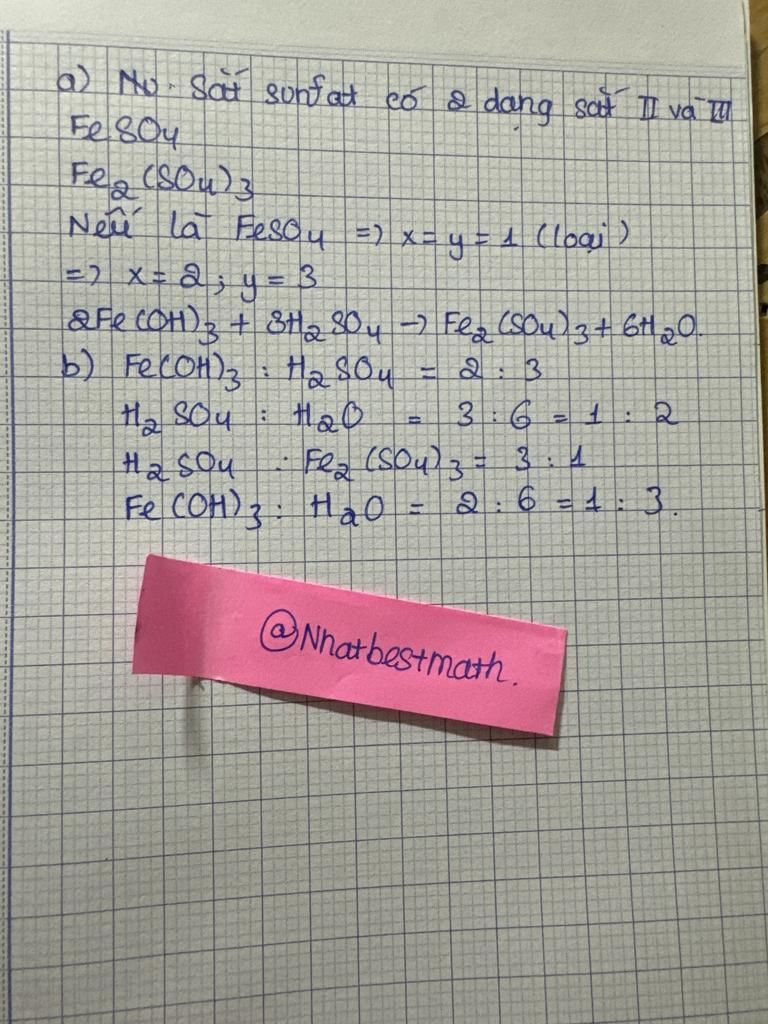 a) Muối sắt sunfat có 2 dạng sắt II và III
FeSO4
Fe2(SO4)3
Nếu là FeSO4 => x = y = 1 (loại)
=> x = 2 ; y = 3
2Fe(OH)3 + 3H2SO4 -> Fe2(SO4)3 + 6H2O.
b) Fe(OH)3 : H2SO4 = 2 : 3
H2SO4 : H2O = 3 : 6 = 1 : 2
H2SO4 : Fe2(SO4)3 = 3 : 1
Fe(OH)3 : H2O = 2 : 6 = 1 : 3.
@Nhatbestmath.